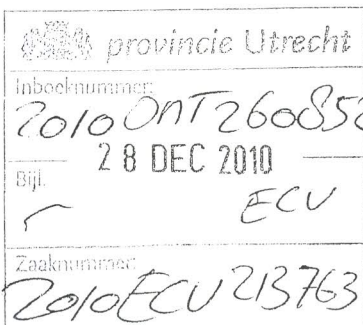 provincie Utrecht
Inboeknummer:
2010 ONT 260852
28 DEC 2010
Bijl.
ECU
Zaaknummer:
2010ECU213763